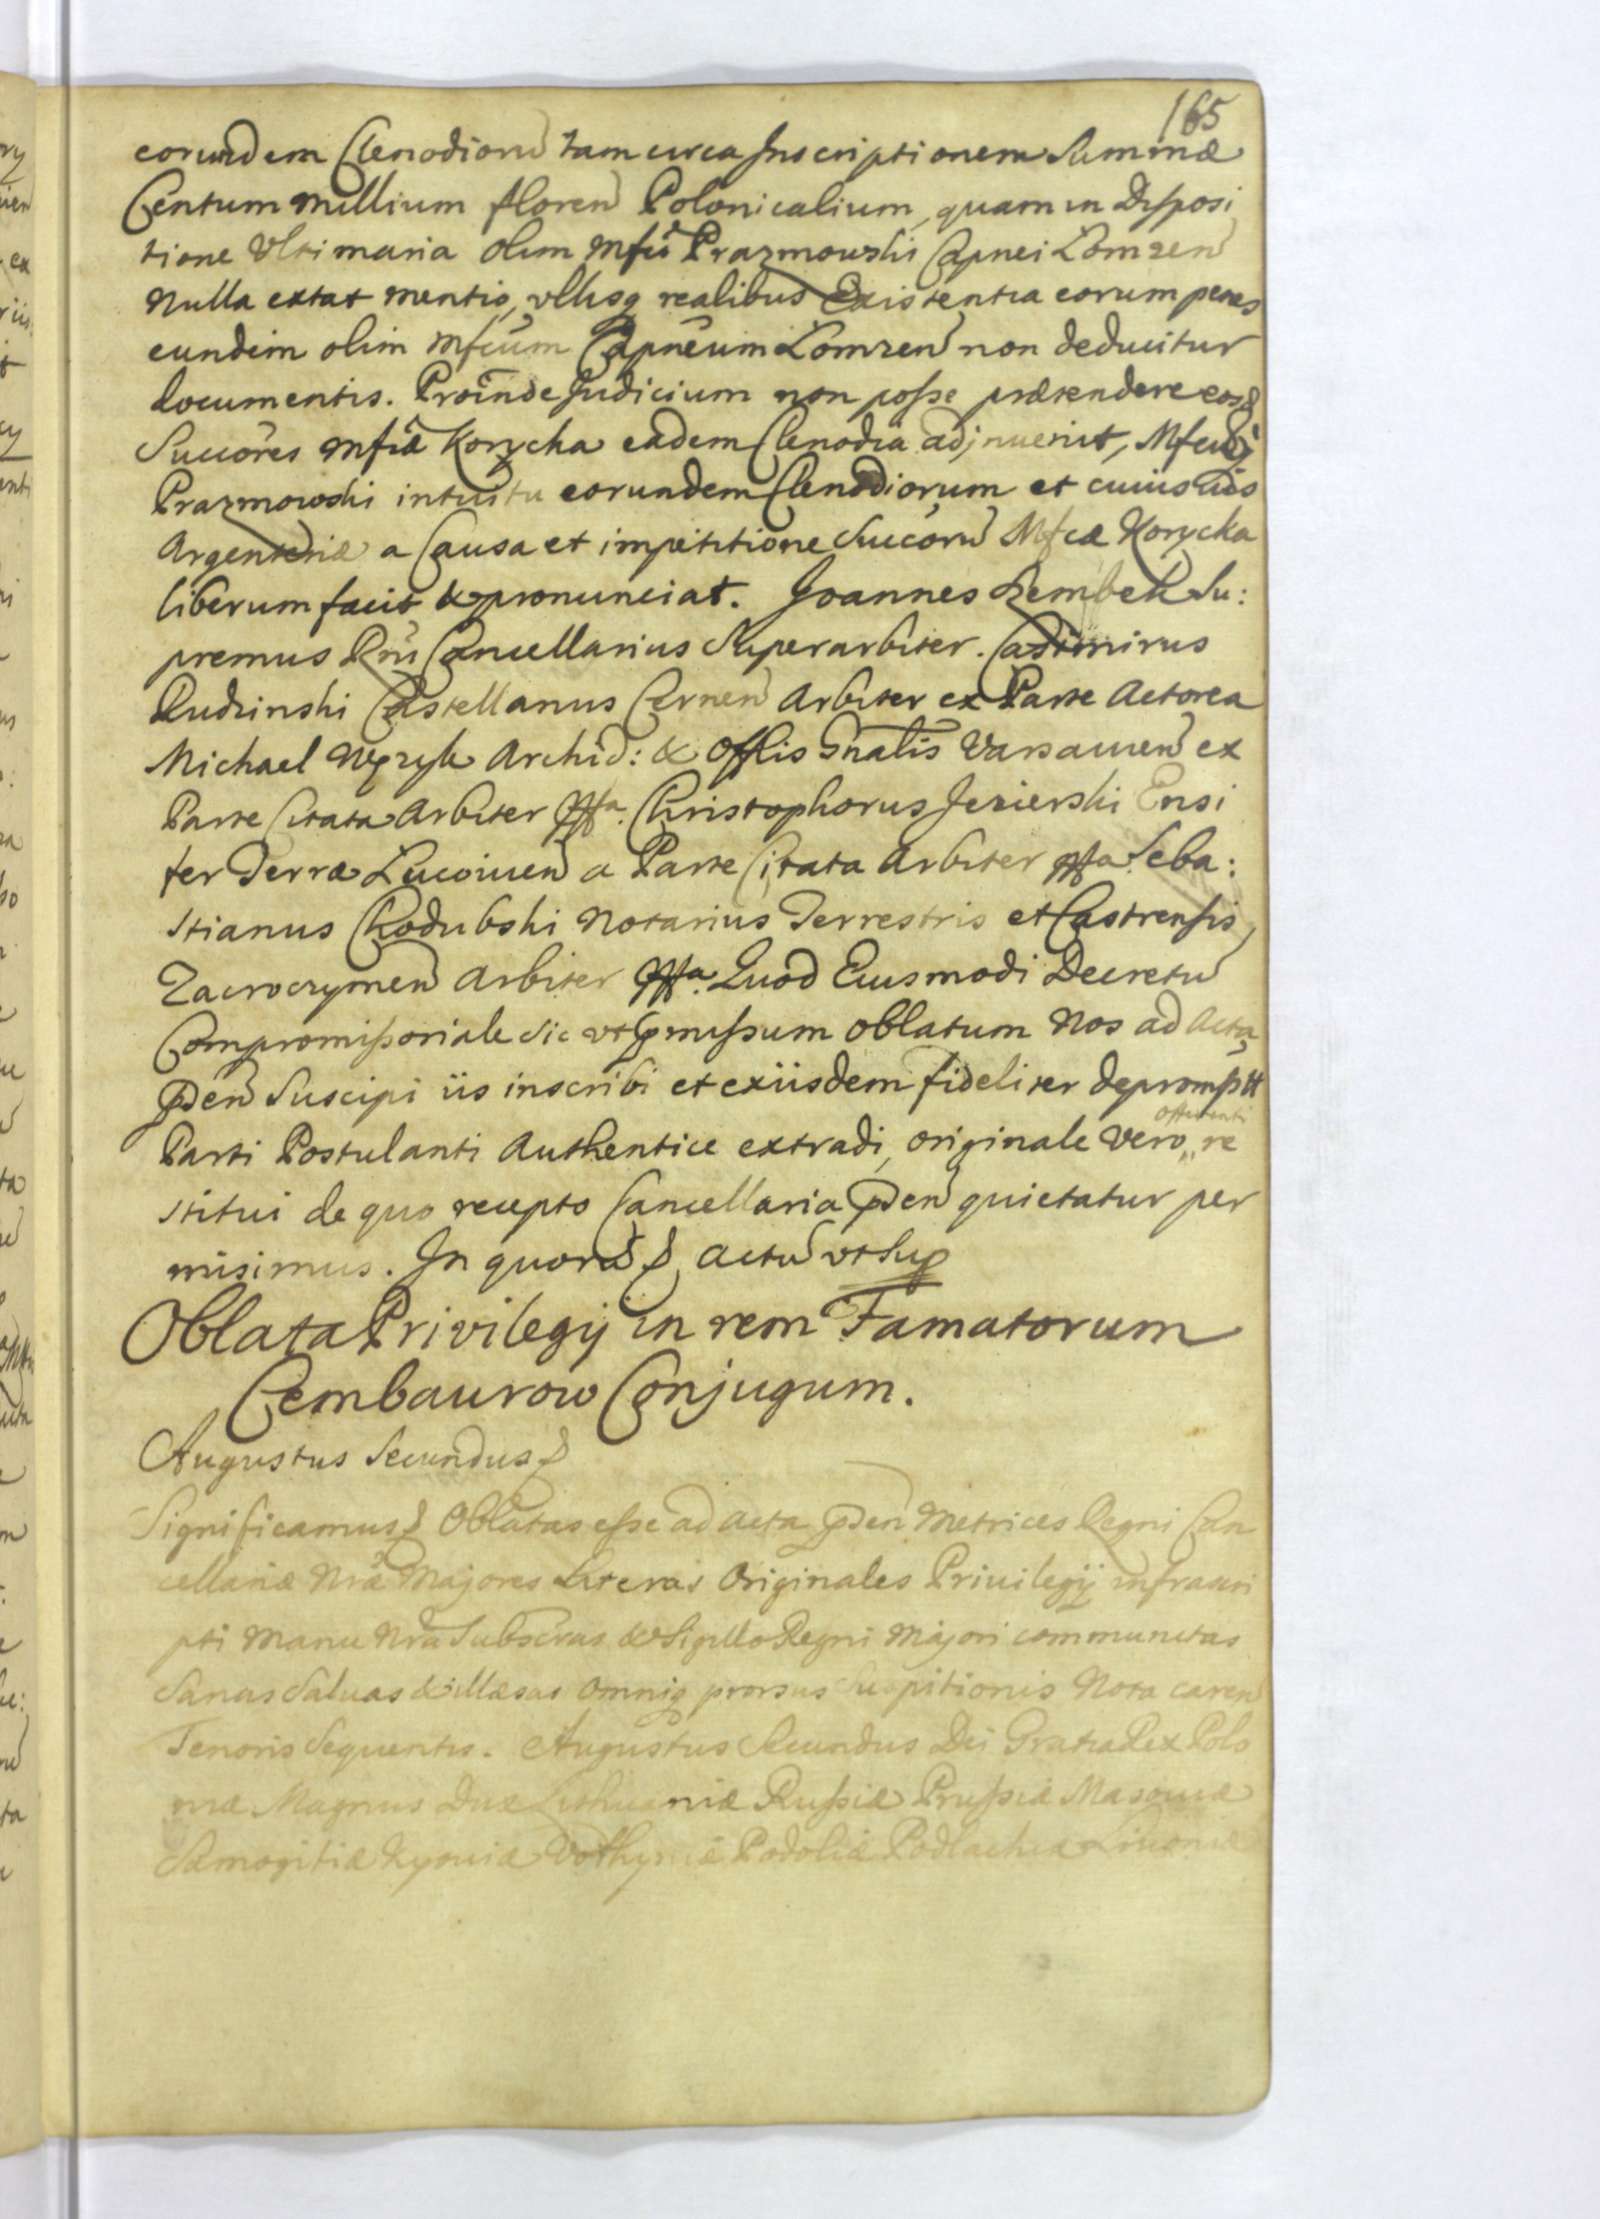 165
eorundem Clenodioru tam circa Inscriptionem Summæ
Centum Millium floren Polonicalium, quam in Disposi
tione Ultimaria olim Mfci Prazmowski Capnei Lomzen
Nulla extat mentio, ullisq realibus Existentia eorum penes
eundem olim Mfcum Capneum Lomzen non deducitur
documentis. Proinde Judicium non posse prætendere eosd
Succores Mfcæ Korycka eadem Clenodia adjnuenit, Mfcum
Prazmowski intuitu eorundem Clenodiorum et cuiusuis
Argenteriæ a Causa et impetitione Succoru Mfcæ Korycka
liberum facit & pronunciat. Joannes Szembek Su:
premus Rni Cancellarius Superarbiter. Casimirus
Rudzinski Castellanus Cernen Arbiter ex Parte Actorea
Michael Wezyk Archid: & Offlis Gnalis Varsauien ex
Parte Citata Arbiter mppa. Christophorus Jezierski Ensi
fer Terræ Lucouien a Parte Citata Arbiter mppa. Seba:
stianus Chodubski Notarius Terrestris et Castrensis
Zacroczymen Arbiter mppa. Quod Eiusmodi Decretu
Compromissoriale sic ut pmissum oblatum Nos ad Acta
pnden Suscipi iis inscribi et exiisdem fideliter depromptt
offerenti
Parti Postulanti Authentice extradi, originale vero,, re
stitui de quo recepto Cancellaria pnden quietatur per
misimus. In quoru & Actu ut Sup
Oblata Privilegij in rem Famatorum
Cembaurow Conjugum.
Augustus Secundus &
Significamus & Oblatas esse ad acta pnden Metrices Regni Can
cellariæ Nræ Majores Literas Originales Priuilegij infrascri
pti Manu Nra Subscras & Sigillo Regni Majori communitas
Sanas Saluas & illæsas Omniq prorsus Suspitionis Nota caren
Tenoris Sequentis. Augustus Secundus Dei Gratia Rex Polo
niæ Magnus Dux Lithuaniæ Russiæ Prussiæ Masouiæ
Samogitiæ Kyouiæ Volhyniæ Podoliæ Podlachiæ Liuoniæ